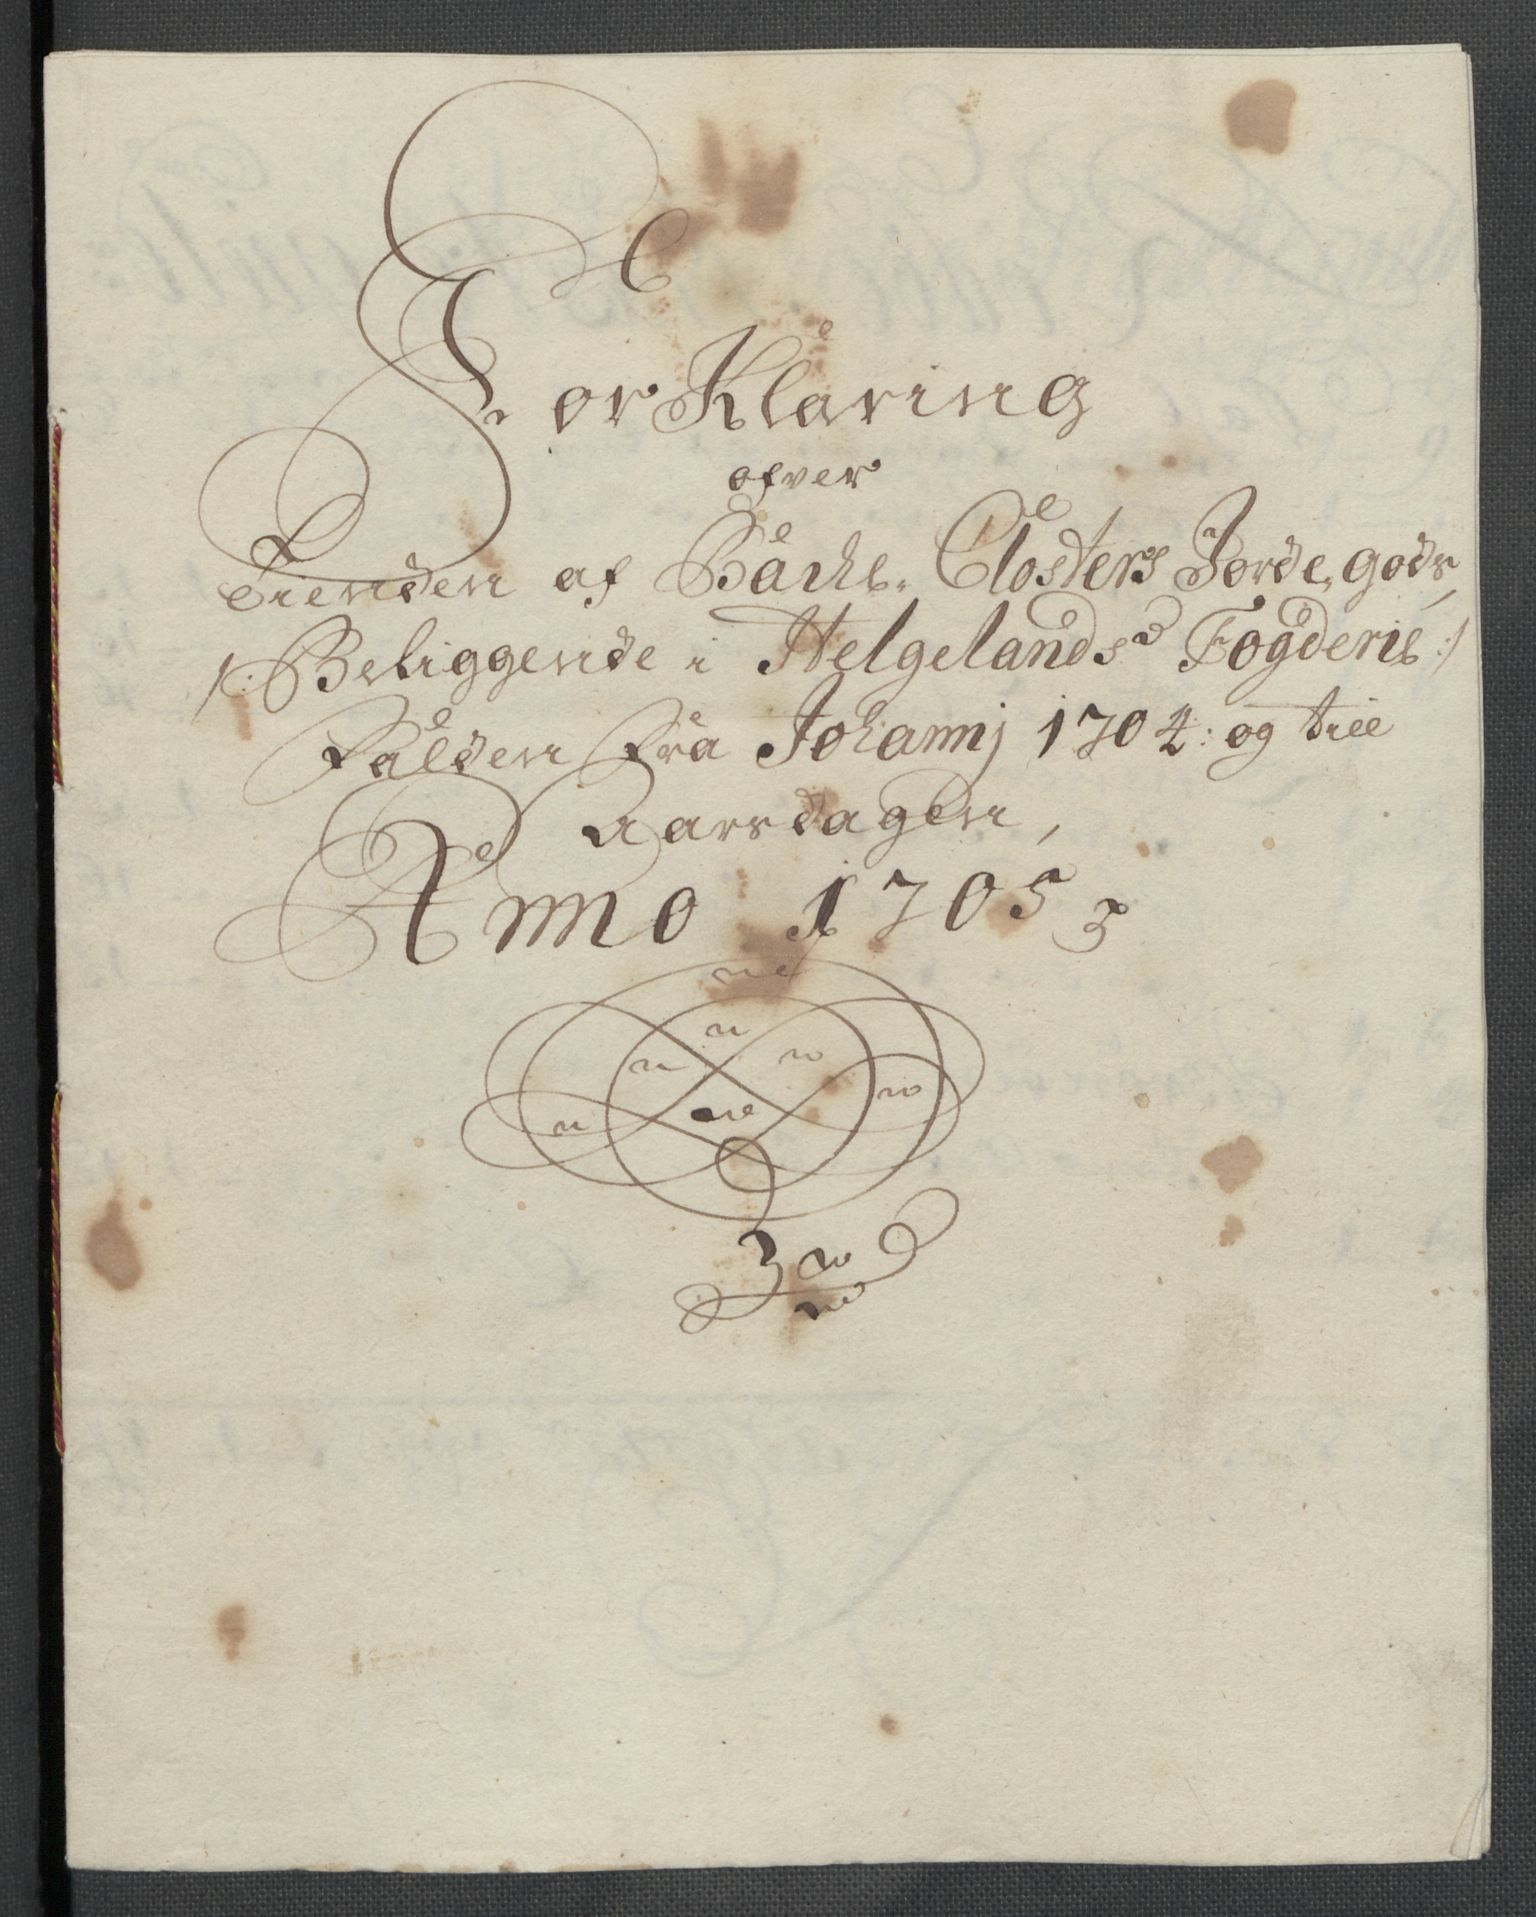 ForKlaring
ofver
Tienden af Backe Closters Jorde,gods,
/: Beliggende i Helgelands Fogderie :/
Falden Fra Johannj 1704: og till
aarsdagen,
Anno 1705